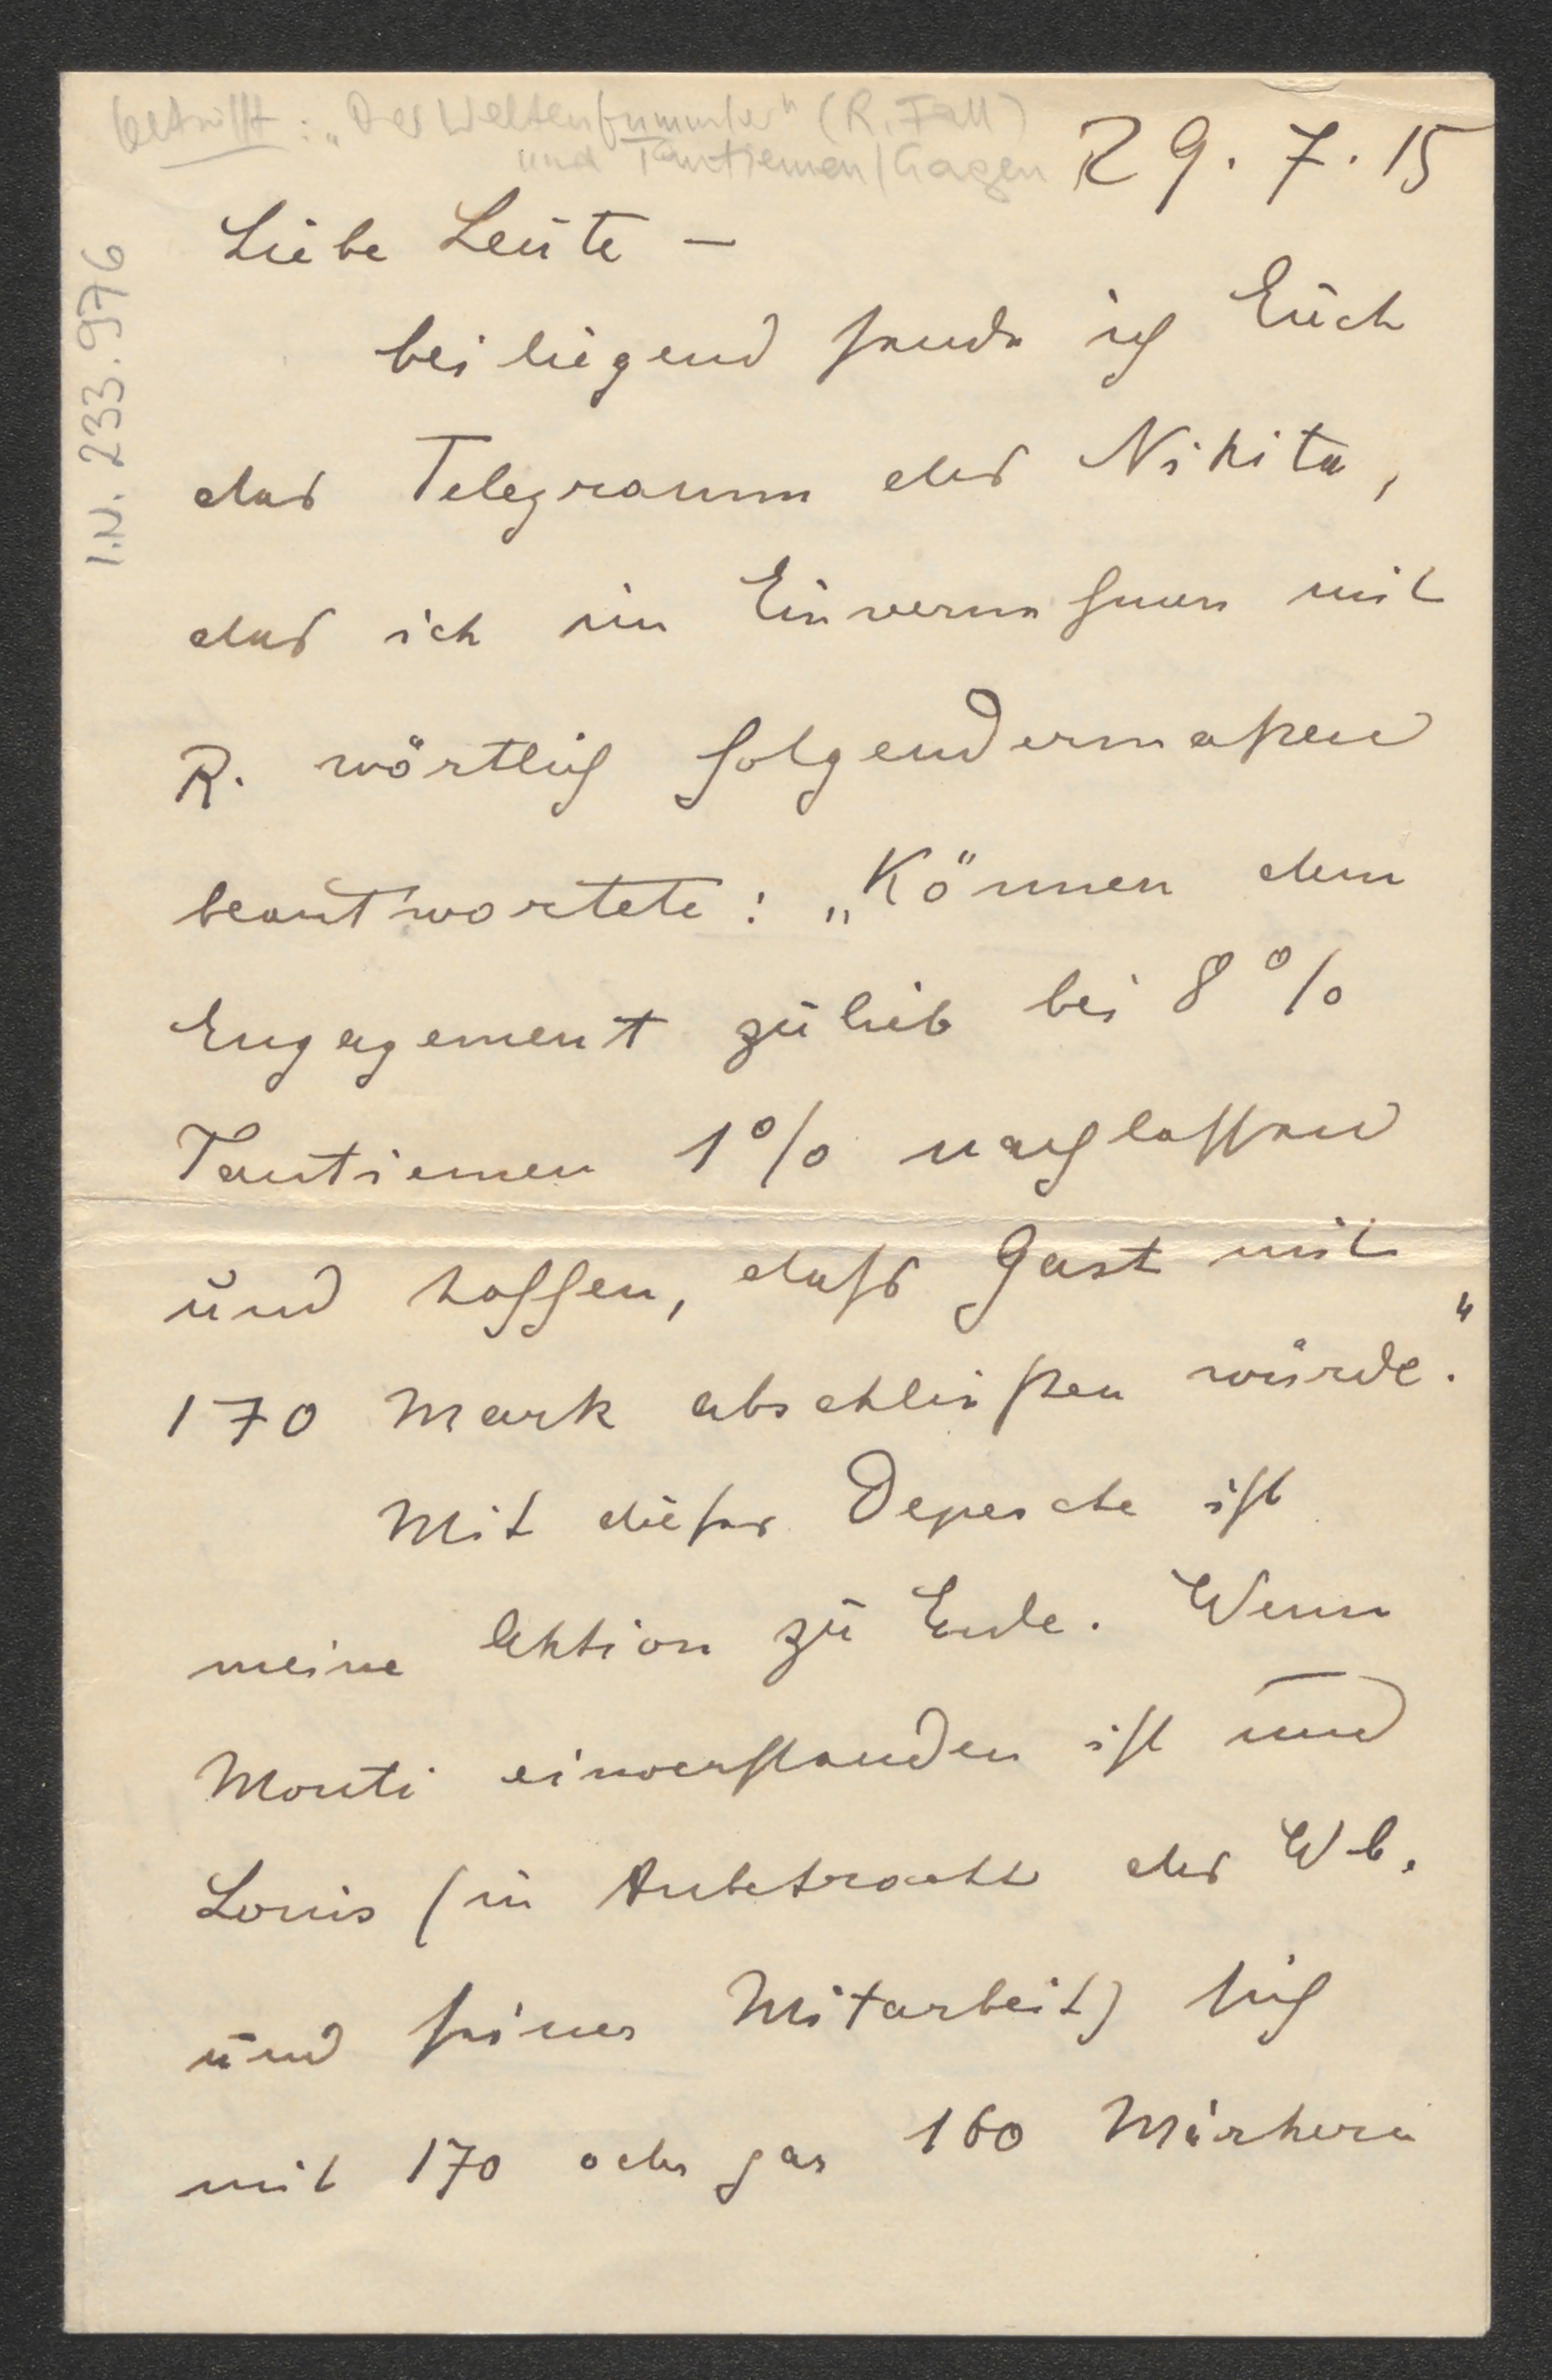 betrifft: „Der Weltenbummler" (R. Fall)
und Tantiemen/Gagen
29. 7. 15
I.N. 233.976
Liebe Leute –
beiliegend sende ich Euch
das Telegramm des Nikita,
das ich im Einvernehmen mit
R. wörtlich folgendermaßen
beantwortete: „Können dem
Engagement zulieb bei 8 %
Tantiemen 1 % nachlassen
und hoffen, dass Gast mit
170 Mark abschließen würde."
Mit dieser Depesche ist
meine Aktion zu Ende. Wenn
Monti einverstanden ist und
Louis (in Anbetracht des Wb.
und seiner Mitarbeit) sich
mit 170 oder gar 160 Märkern